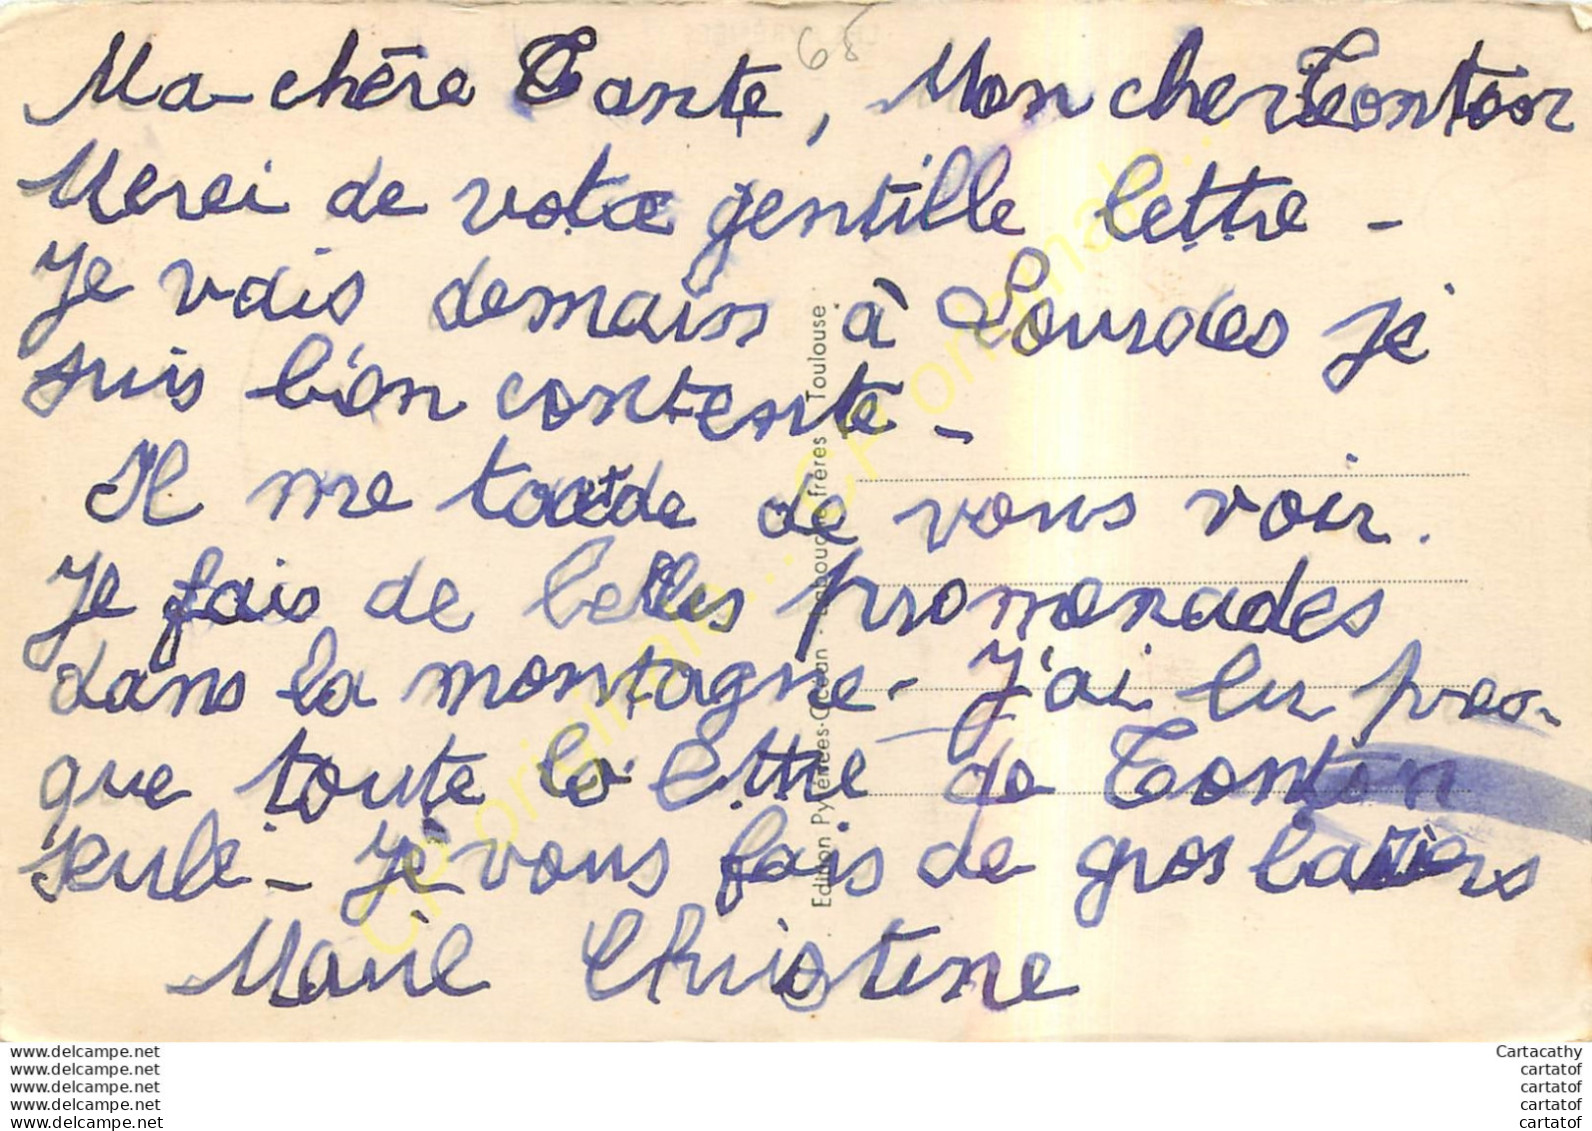 68
Ma chère Tante, Mon cher Tonton
Merci de votre gentille lettre -
Je vais demain à Lourdes je
suis bien contente -
Il me tarde de vous voir.
Je fais de belles promenades
dans la montagne - J'ai lu pres-
que toute la lettre de Tonton
seule - Je vous fais de gros baisers
Marie Christine
Edition Pyrénées-Océan - Labouche frères Toulouse
www.delcampe.net
www.delcampe.net
www.delcampe.net
www.delcampe.net
www.delcampe.net
Cartacathy
cartatof
cartatof
cartatof
cartatof